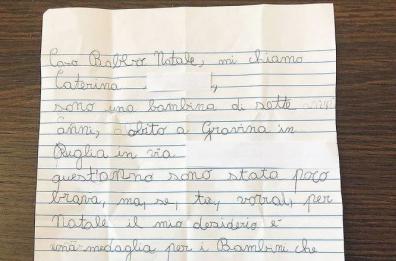 Caro Babbo Natale, mi chiamo
Caterina ,
sono una bambina di sette
anni, abito a Gravina in
Puglia in via
quest'anno sono stata poco
brava, ma, se, te, vorrai, per
Natale il mio desiderio è
una medaglia per i Bambini che